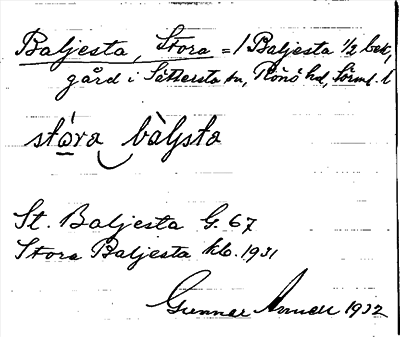 Baljesta, Stora = /Baljesta 1/2 bek,
gård i Sättersta sn, Rönö hd, Sörml. l
stóra bàljsta
St. Baljesta G. 67
Stora Baljesta kb. 1931
Gunnar 1932